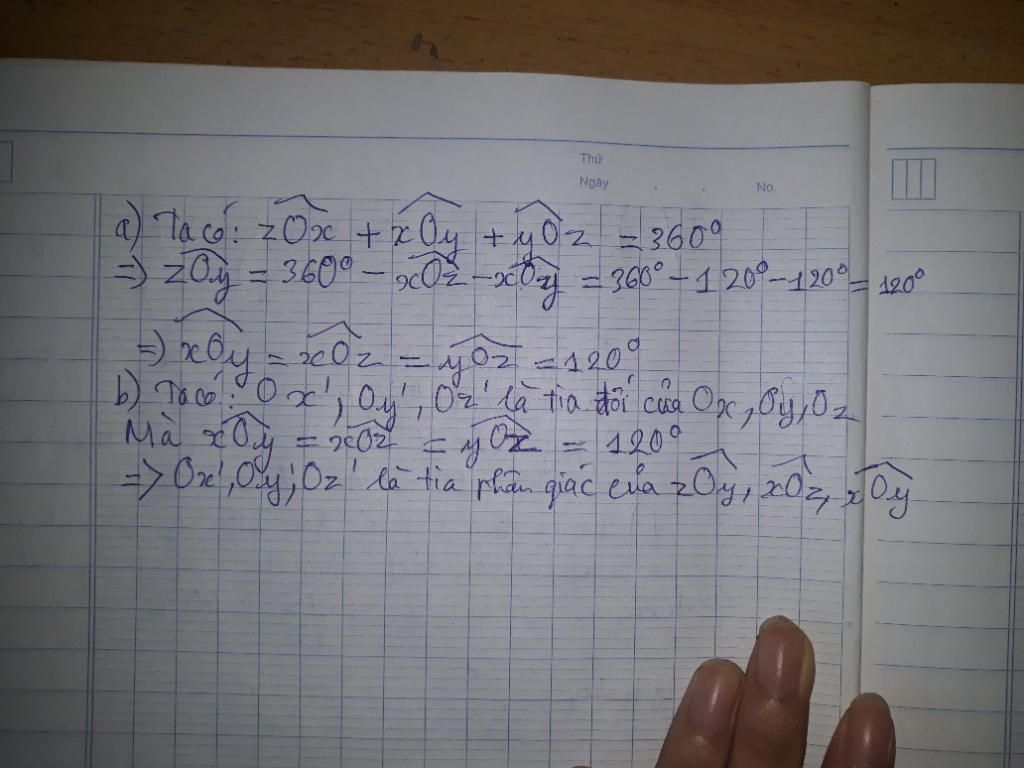 Thứ
Ngày . . No.
a) Ta có: zOx + xOy + yOz = 360°
=> zOy = 360° - xOz - xOy = 360° - 120° - 120° = 120°
=> xOy = xOz = yOz = 120°
b) Ta có: Ox', Oy', Oz' là tia đối của Ox, Oy, Oz
Mà xOy = xOz = yOz = 120°
=> Ox', Oy', Oz' là tia phân giác của zOy, xOz, xOy